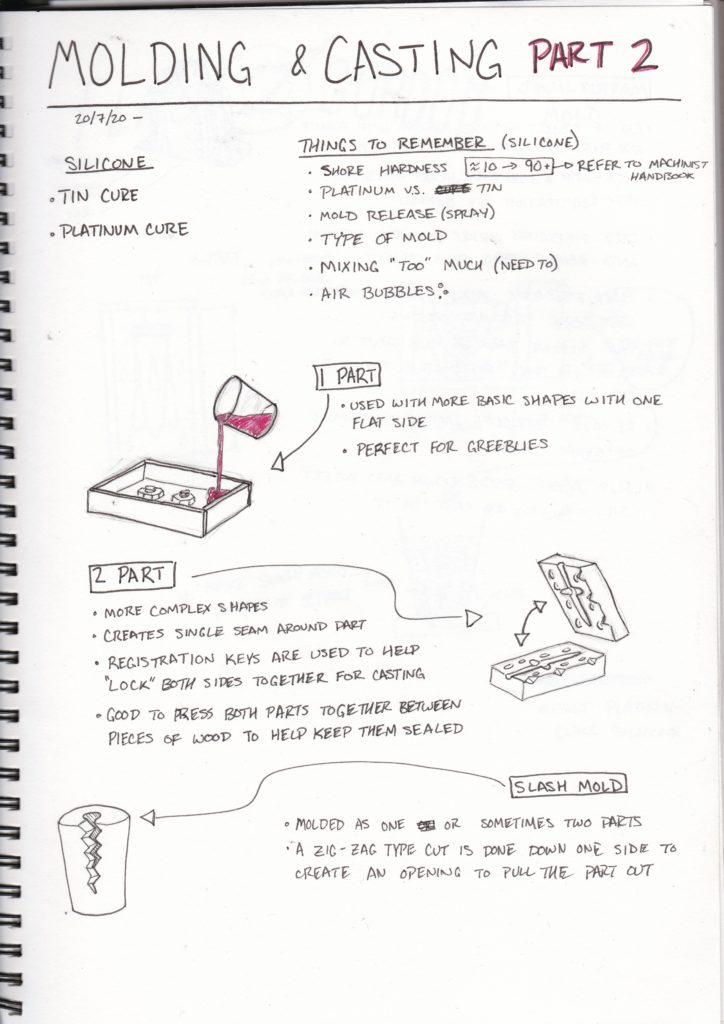 MOLDING & CASTING PART 2
20/7/20 –
SILICONE
• TIN CURE
• PLATINUM CURE
THINGS TO REMEMBER (SILICONE)
• SHORE HARDNESS ≈10 → 90+ → REFER TO MACHINIST
HANDBOOK
• PLATINUM V.S. TIN
• MOLD RELEASE (SPRAY)
• TYPE OF MOLD
• MIXING "TOO" MUCH (NEED TO)
• AIR BUBBLES
1 PART
• USED WITH MORE BASIC SHAPES WITH ONE
FLAT SIDE
• PERFECT FOR GREEBLIES
2 PART
• MORE COMPLEX SHAPES
• CREATES SINGLE SEAM AROUND PART
• REGISTRATION KEYS ARE USED TO HELP
"LOCK" BOTH SIDES TOGETHER FOR CASTING
• GOOD TO PRESS BOTH PARTS TOGETHER BETWEEN
PIECES OF WOOD TO HELP KEEP THEM SEALED
SLASH MOLD
• MOLDED AS ONE OR SOMETIMES TWO PARTS
• A ZIG-ZAG TYPE CUT IS DONE DOWN ONE SIDE TO
CREATE AN OPENING TO PULL THE PART OUT